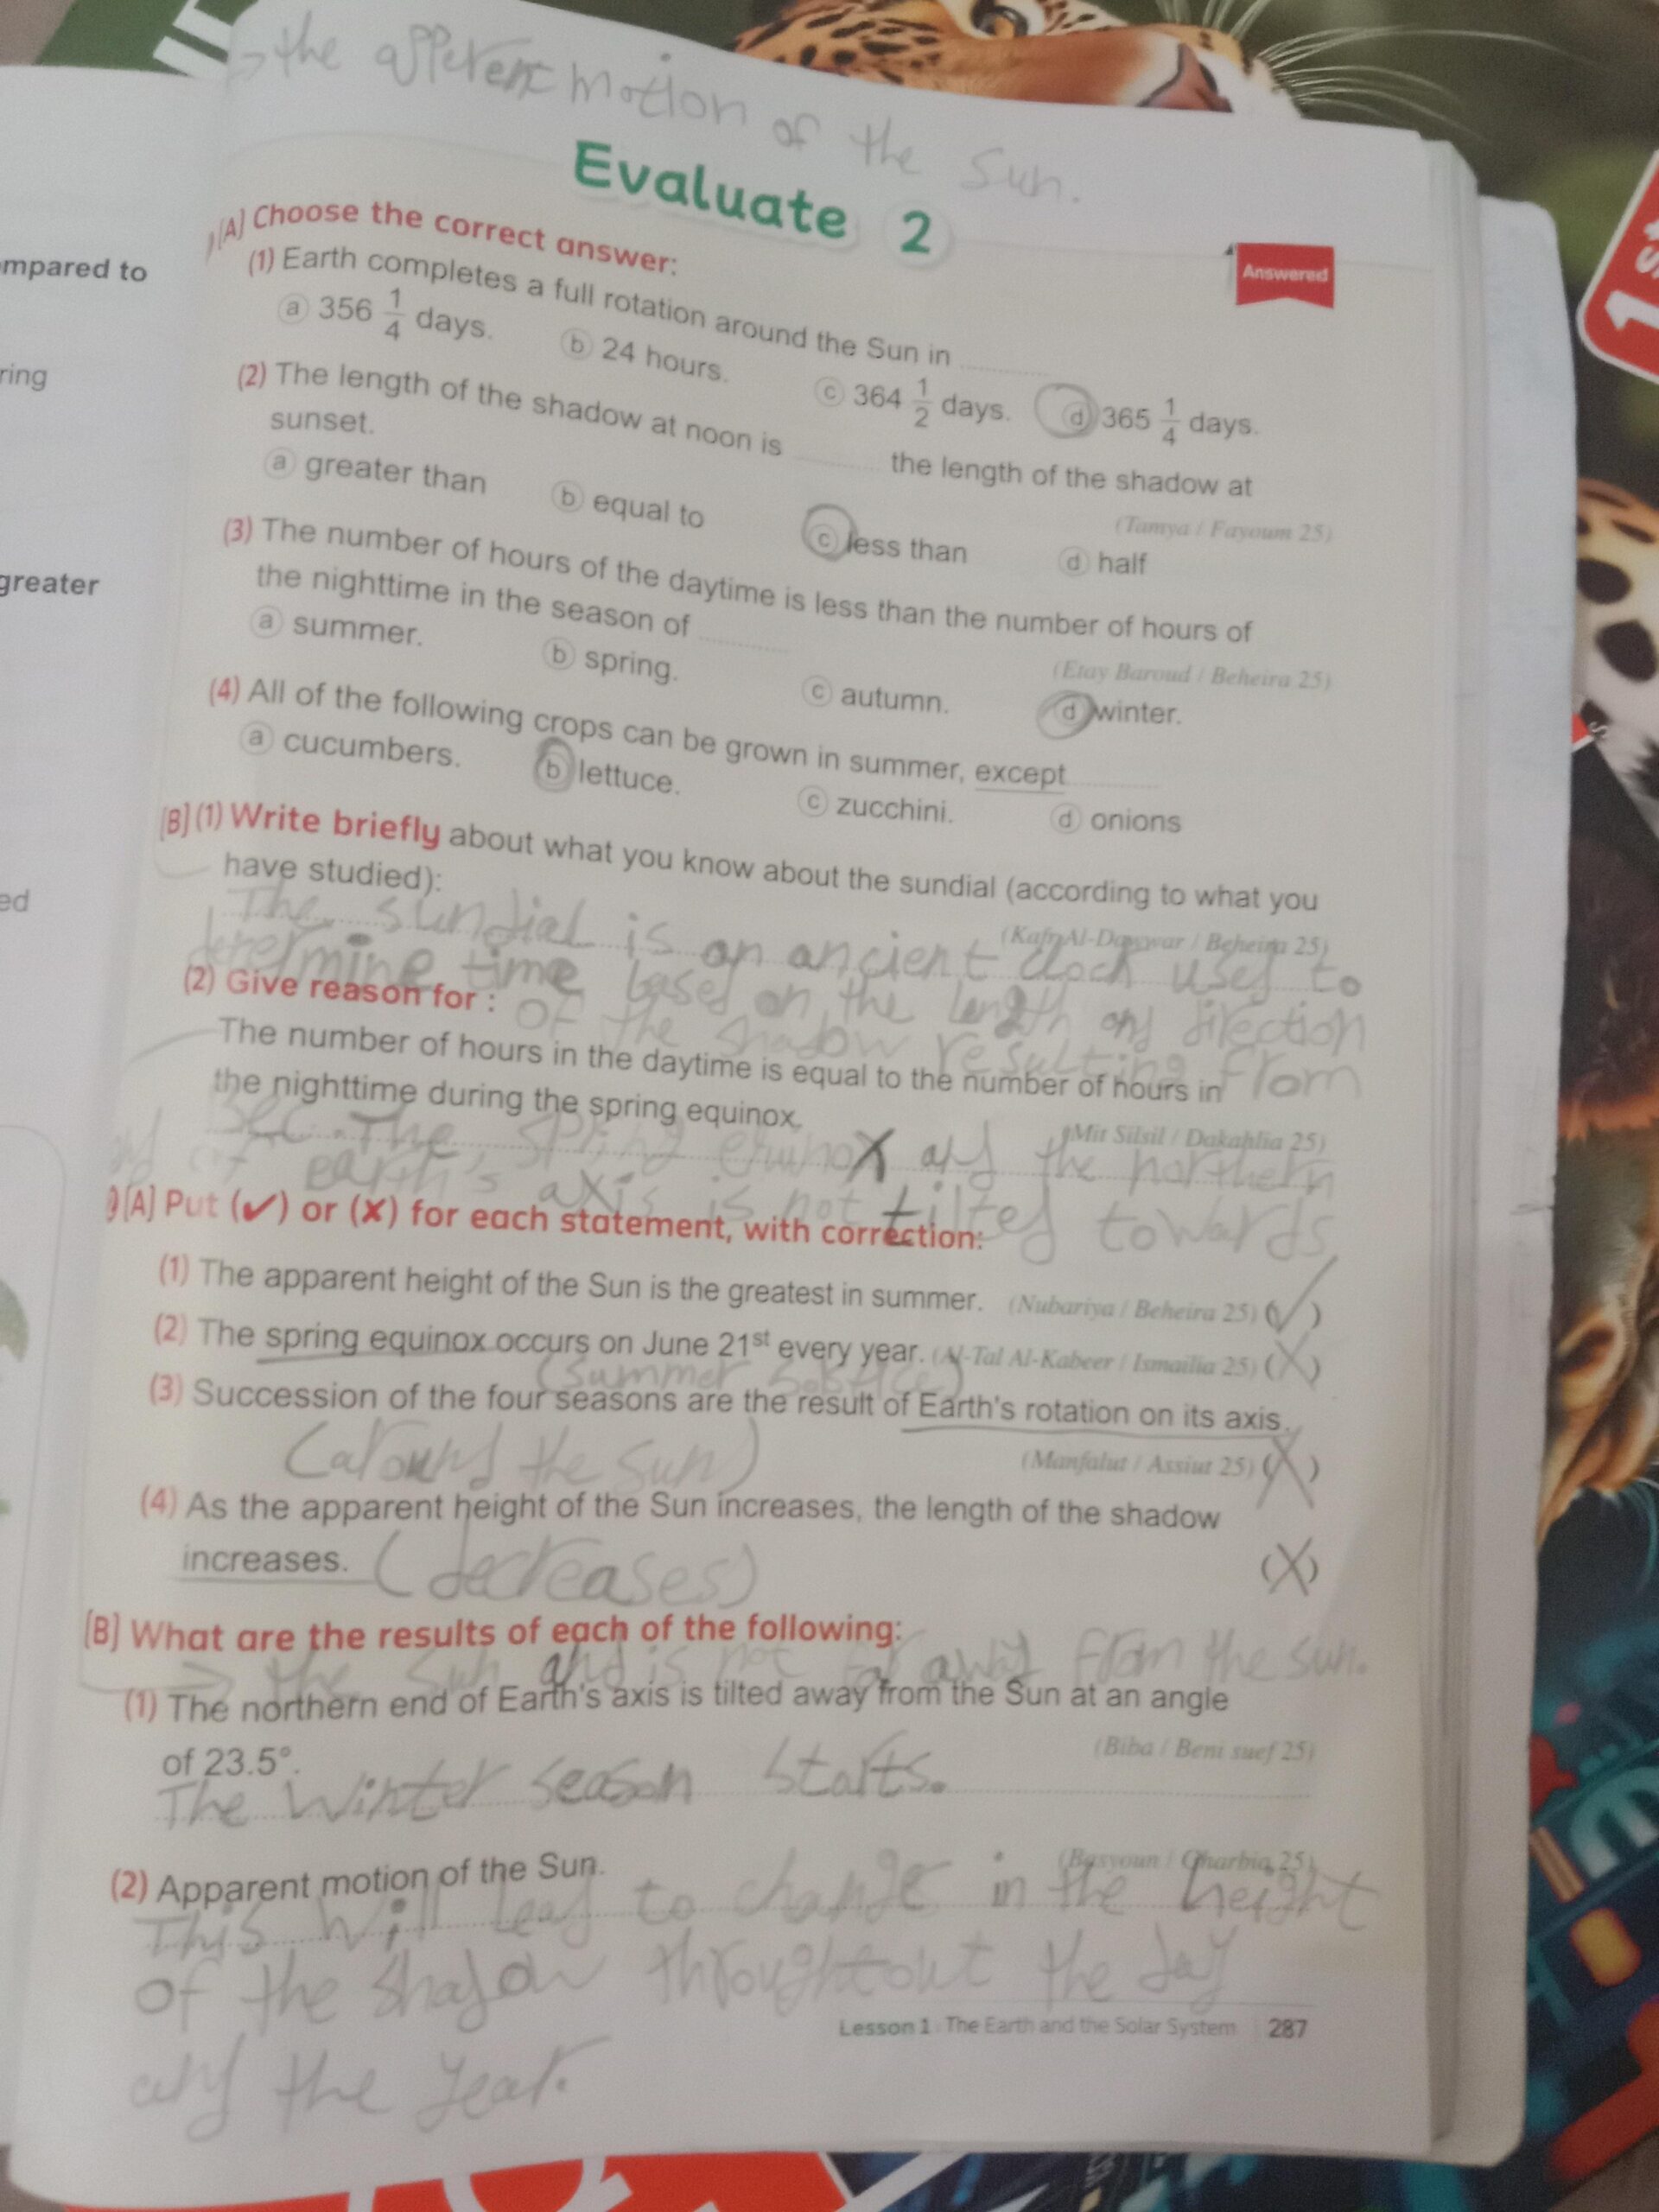 → the apperent motion of the sun.
Evaluate 2
Answered
[A] Choose the correct answer:
(1) Earth completes a full rotation around the Sun in
a 356 1/4 days. b 24 hours. c 364 1/2 days. d 365 1/4 days.
(2) The length of the shadow at noon is the length of the shadow at
sunset.
(Tamya / Fayoum 25)
a greater than b equal to c less than d half
(3) The number of hours of the daytime is less than the number of hours of
the nighttime in the season of
(Etay Baroud / Beheira 25)
a summer. b spring. c autumn. d winter.
(4) All of the following crops can be grown in summer, except
a cucumbers. b lettuce. c zucchini. d onions
[B] (1) Write briefly about what you know about the sundial (according to what you
have studied):
(Kafr Al-Dawwar / Beheira 25)
The sundial is an ancient clock used to
determine time based on the length and direction
of the shadow resulting from
(2) Give reason for :
The number of hours in the daytime is equal to the number of hours in
the nighttime during the spring equinox.
(Mit Silsil / Dakahlia 25)
Bec. The spring and the northern
of earth's axis is not tilted towards
[A] Put (✔) or (✘) for each statement, with correction:
(1) The apparent height of the Sun is the greatest in summer. (Nubariya / Beheira 25) (✓)
(2) The spring equinox occurs on June 21st every year. (Al-Tal Al-Kabeer / Ismailia 25) (X)
(summer solstice)
(3) Succession of the four seasons are the result of Earth's rotation on its axis.
(around the sun) (Manfalut / Assiut 25) (X)
(4) As the apparent height of the Sun increases, the length of the shadow
increases. (decreases) (X)
[B] What are the results of each of the following:
→ the sun and is not far away from the sun.
(1) The northern end of Earth's axis is tilted away from the Sun at an angle
of 23.5°.
(Biba / Beni suef 25)
The winter season starts.
(2) Apparent motion of the Sun.
(Basyoun / Gharbia 25)
This will lead to change in the height
of the shadow throughtout the day
and the year.
Lesson 1 The Earth and the Solar System 287
mpared to
ring
greater
ed